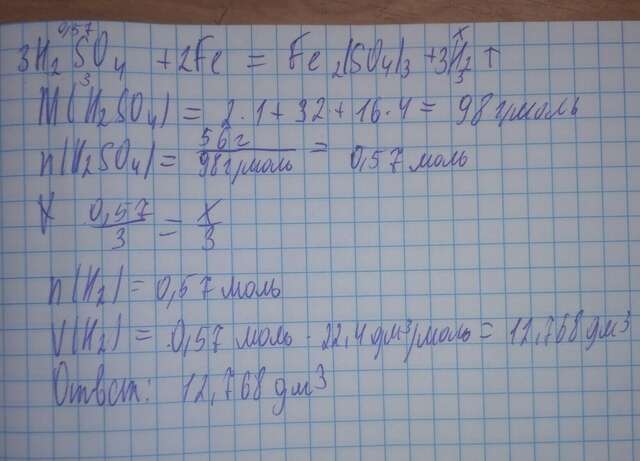 0,57 x
3H2SO4 + 2Fe = Fe2(SO4)3 + 3H2 ↑
3 3
M(H2SO4) = 2·1+32+16·4 = 98 г/моль
n(H2SO4) = 56г / 98г/моль = 0,57 моль
0,57/3 = x/3
n(H2) = 0,57 моль
V(H2) = 0,57 моль · 22,4 дм³/моль = 12,768 дм³
Ответ: 12,768 дм³